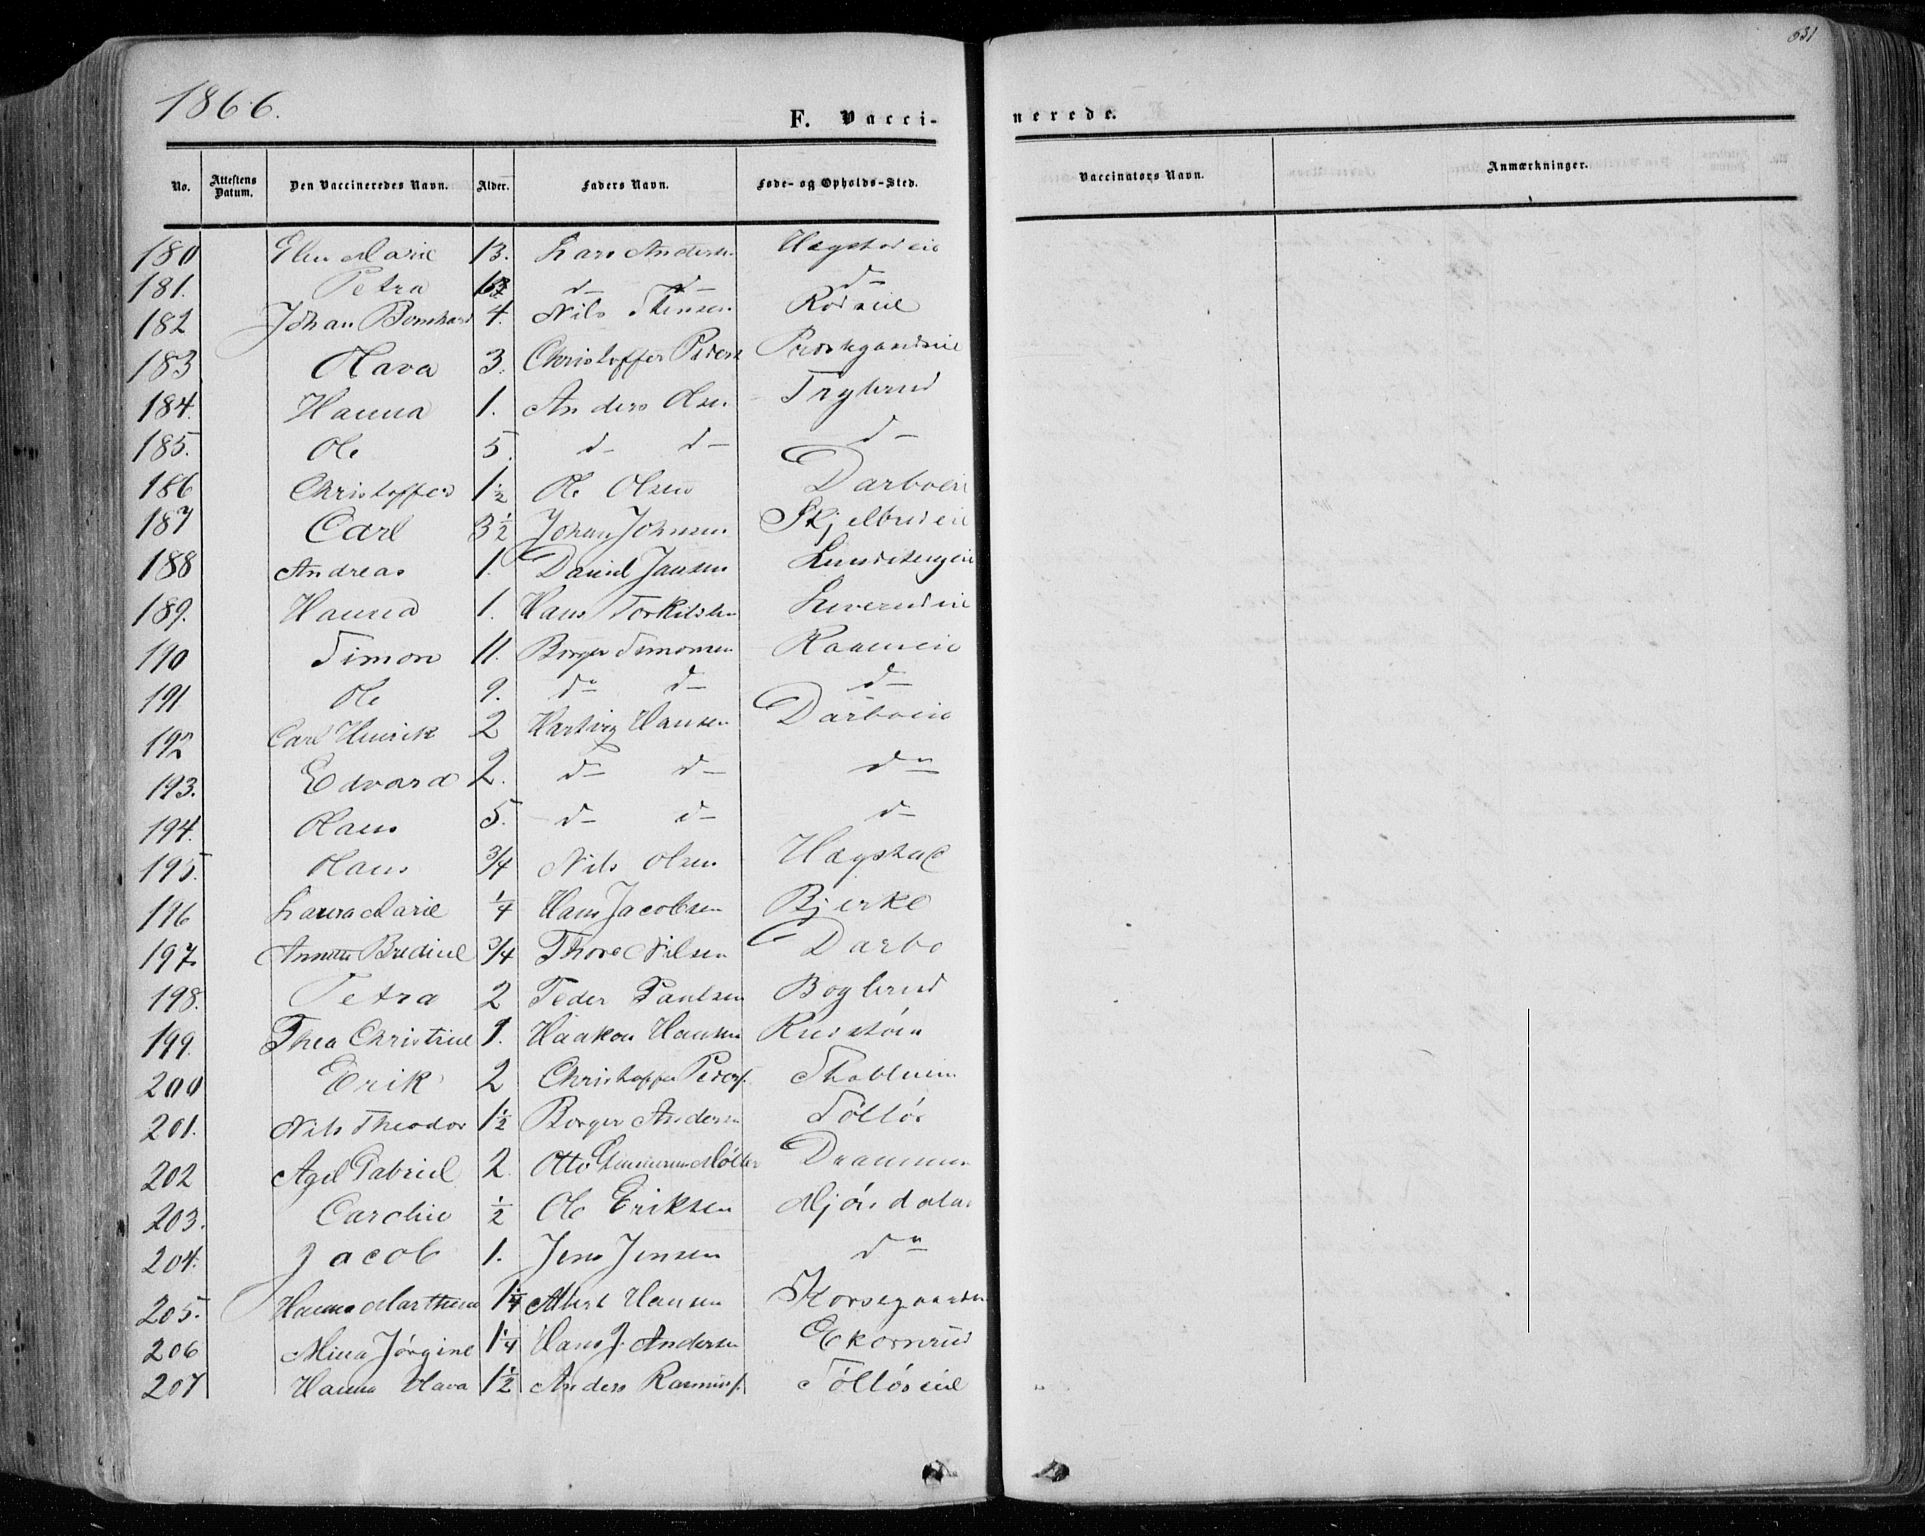 1866.
631
F. Vacci-
nerede.
No. Attestens Datum. Den Vaccineredes Navn. Alder. Faders Navn. Føde- og Opholds-Sted. Vaccinators Navn. Anmærkninger.
180 Ellen Marie 13. Lars Andersen Hægstadeie
181. Petra d- d- d-
182 Johan Bernhard 4. Nils
183 Olava 3. Christoffer Peders
184. Hanna 1. Anders Olsen Tryterud
185. Ole 5. d- d- d-
186 Christoffer 1½ Ole Olsen Darboeie
187 Carl 3½ Johan Johnsen Skjelbredeie
188 Andreas 1. Daniel Jansen
189. Hanna 1. Hans Torkilsen Leverudeie
190 Simon 11. Borger Simonsen
191 Ole 9. do d- d-
192 Carl Henrik 2 Hartvig Hansen Darboeie
193. Edvard 2. d- d- do
194. Hans 5. d- d- d-
195. Hans 3/4 Nils Olsen Hægstad
196 Laura Marie ¼ Hans Jacobsen Bjerke
197. Annette Bredine 3/4 Thore Nilsen Darbo
198. Petra 2 Peder Paulsen
199. Thea Christine 1. Haakon Hansen
200 Erik 2 Christoffer Peders.
201. Nils Theodor 1½ Borger Andersen Tøltør
202 Axel Gabriel 2. Otto Møller Drammen
203. Caroline ½ Ole Eriksen Mjøndalen
204. Jacob 1. Jens Jensen do
205. Hanna Marthine 1¼ Albert Hansen Korsegaarden
206 Mina Jørgine 1¼ Hans J. Andersen Ekornrud
207 Hanna Olava 1½ Anders Rasmus. Tøltøreie